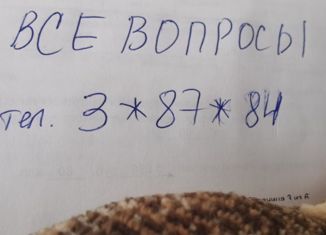 ВСЕ ВОПРОСЫ
тел. 3*87*84